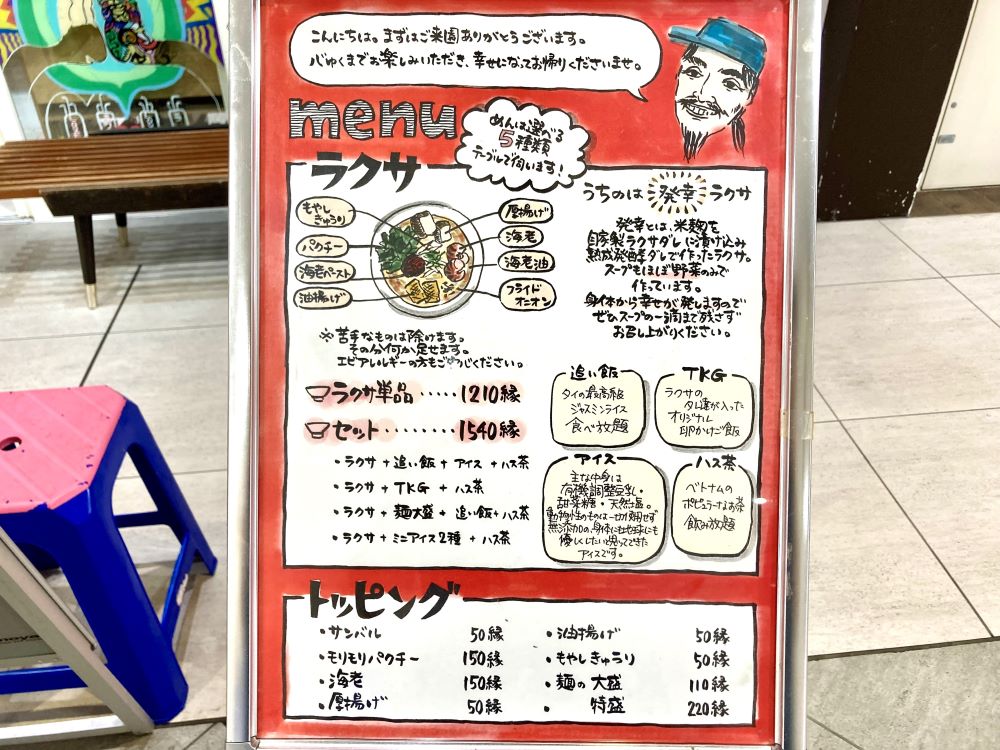 こんにちは。まずはご来園ありがとうございます。
心ゆくまでお楽しみいただき、幸せになってお帰りくださいませ。
menu
めんは選べる
5種類
テーブルで伺います!
ラクサ
もやし
きゅうり
パクチー
海老ペースト
油揚げ
厚揚げ
海老
海老油
フライド
オニオン
うちのは 発幸 ラクサ
発幸とは、米麹を
自家製ラクサダレに漬け込み
熟成発酵ダレで作ったラクサ。
スープもほぼ野菜のみで
作っています。
身体から幸せが発しますので
ぜひスープの一滴まで残さず
お召し上がりください。
※苦手なものは除けます。
その分何か足せます。
エビアレルギーの方もご安心ください。
ラクサ単品 ····· 1210縁
セット ········ 1540縁
・ラクサ + 追い飯 + アイス + ハス茶
・ラクサ + TKG + ハス茶
・ラクサ + 麺大盛 + 追い飯 + ハス茶
・ラクサ + ミニアイス2種 + ハス茶
追い飯
タイの最高級
ジャスミンライス
食べ放題
TKG
ラクサの
タレ達が入った
オリジナル
卵かけご飯
アイス
主な中身は
有機調整豆乳・
甜菜糖・天然塩。
動物性のものは一切使用せず
無添加の、身体にも地球にも
優しくしたいと思ってできた
アイスです。
ハス茶
ベトナムの
ポピュラーなお茶
飲み放題
トッピング
・サンバル 50縁
・モリモリパクチー 150縁
・海老 150縁
・厚揚げ 50縁
・油揚げ 50縁
・もやしきゅうり 50縁
・麺の大盛 110縁
・ 特盛 220縁